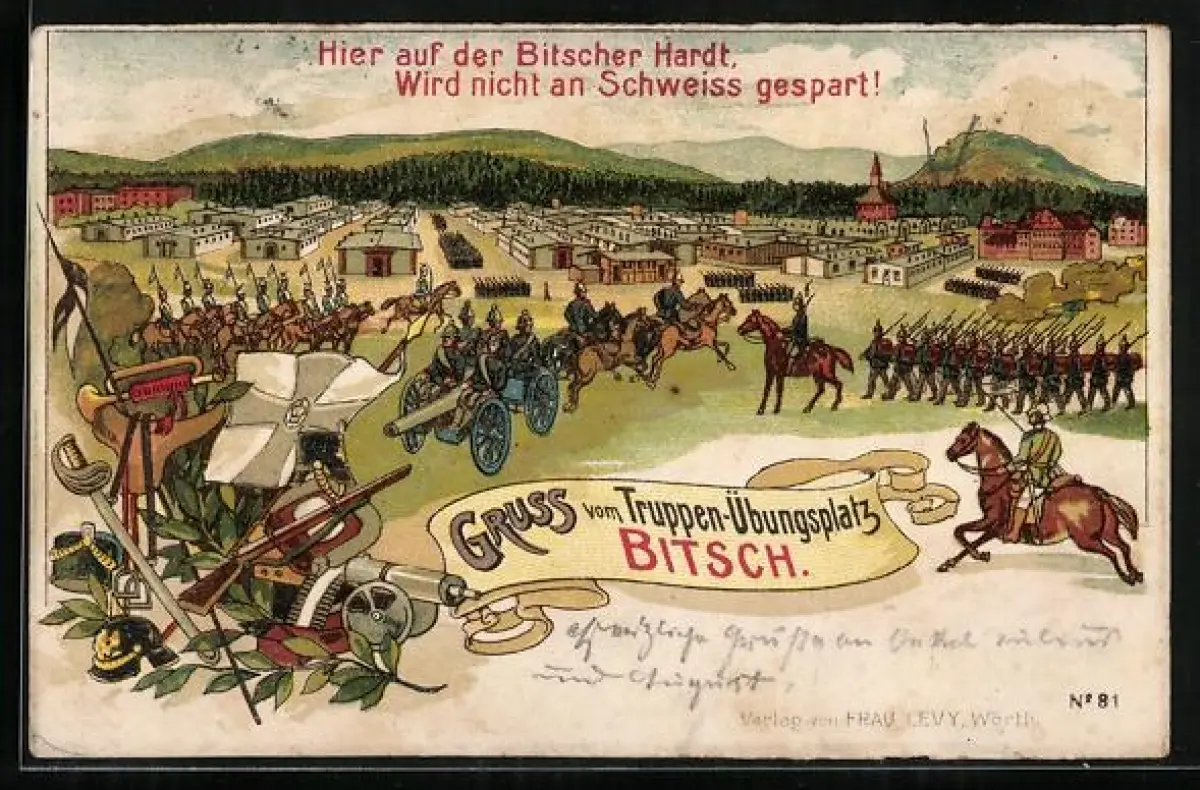 Hier auf der Bitscher Hardt,
Wird nicht an Schweiss gespart!
GRUSS vom Truppen-Übungsplatz
BITSCH.
herzliche Grüße an Onkel
und August.
Nº 81
Verlag von FRAU LEVY, Wörth.